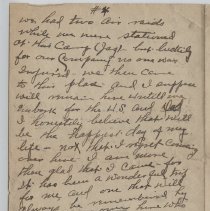 #4
we had two air raids
while we were stationed
at this Camp Dage but luckily
for our Company no one was
Injured. we then came
to this place and I suppose
will remain here untill we
embark for the U.S and
I honestly believe that will
be the happiest day of my
life - not that I regret coming
over here I am more
then glad that I came for
it has been a wonderful trip
for me and one that will
always be remembered by